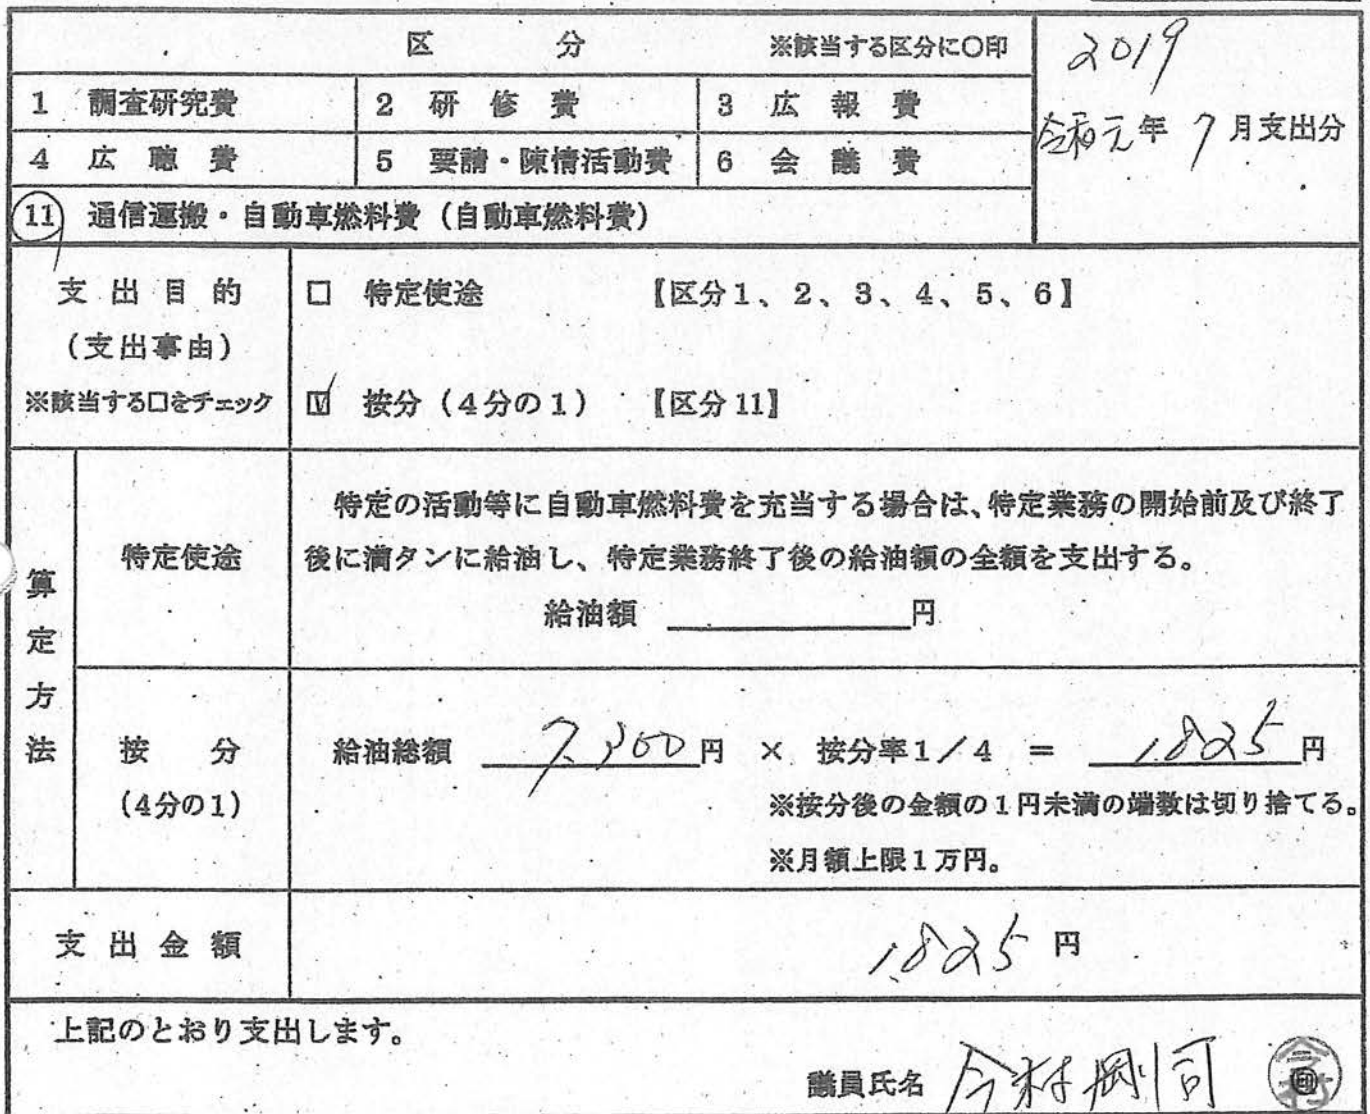 区 分 ※該当する区分に○印
2019
令和元年 7月支出分
1 調査研究費 2 研修費 3 広報費
4 広聴費 5 要請・陳情活動費 6 会議費
11 通信運搬・自動車燃料費(自動車燃料費)
支出目的
(支出事由)
※該当する□をチェック
□ 特定使途 【区分1、2、3、4、5、6】
☑ 按分(4分の1) 【区分11】
算定方法
特定使途
特定の活動等に自動車燃料費を充当する場合は、特定業務の開始前及び終了
後に満タンに給油し、特定業務終了後の給油額の全額を支出する。
給油額 円
按分
(4分の1)
給油総額 7,300円 × 按分率1/4 = 1,825円
※按分後の金額の1円未満の端数は切り捨てる。
※月額上限1万円。
支出金額 1,825円
上記のとおり支出します。
議員氏名 今村剛司 印
今村